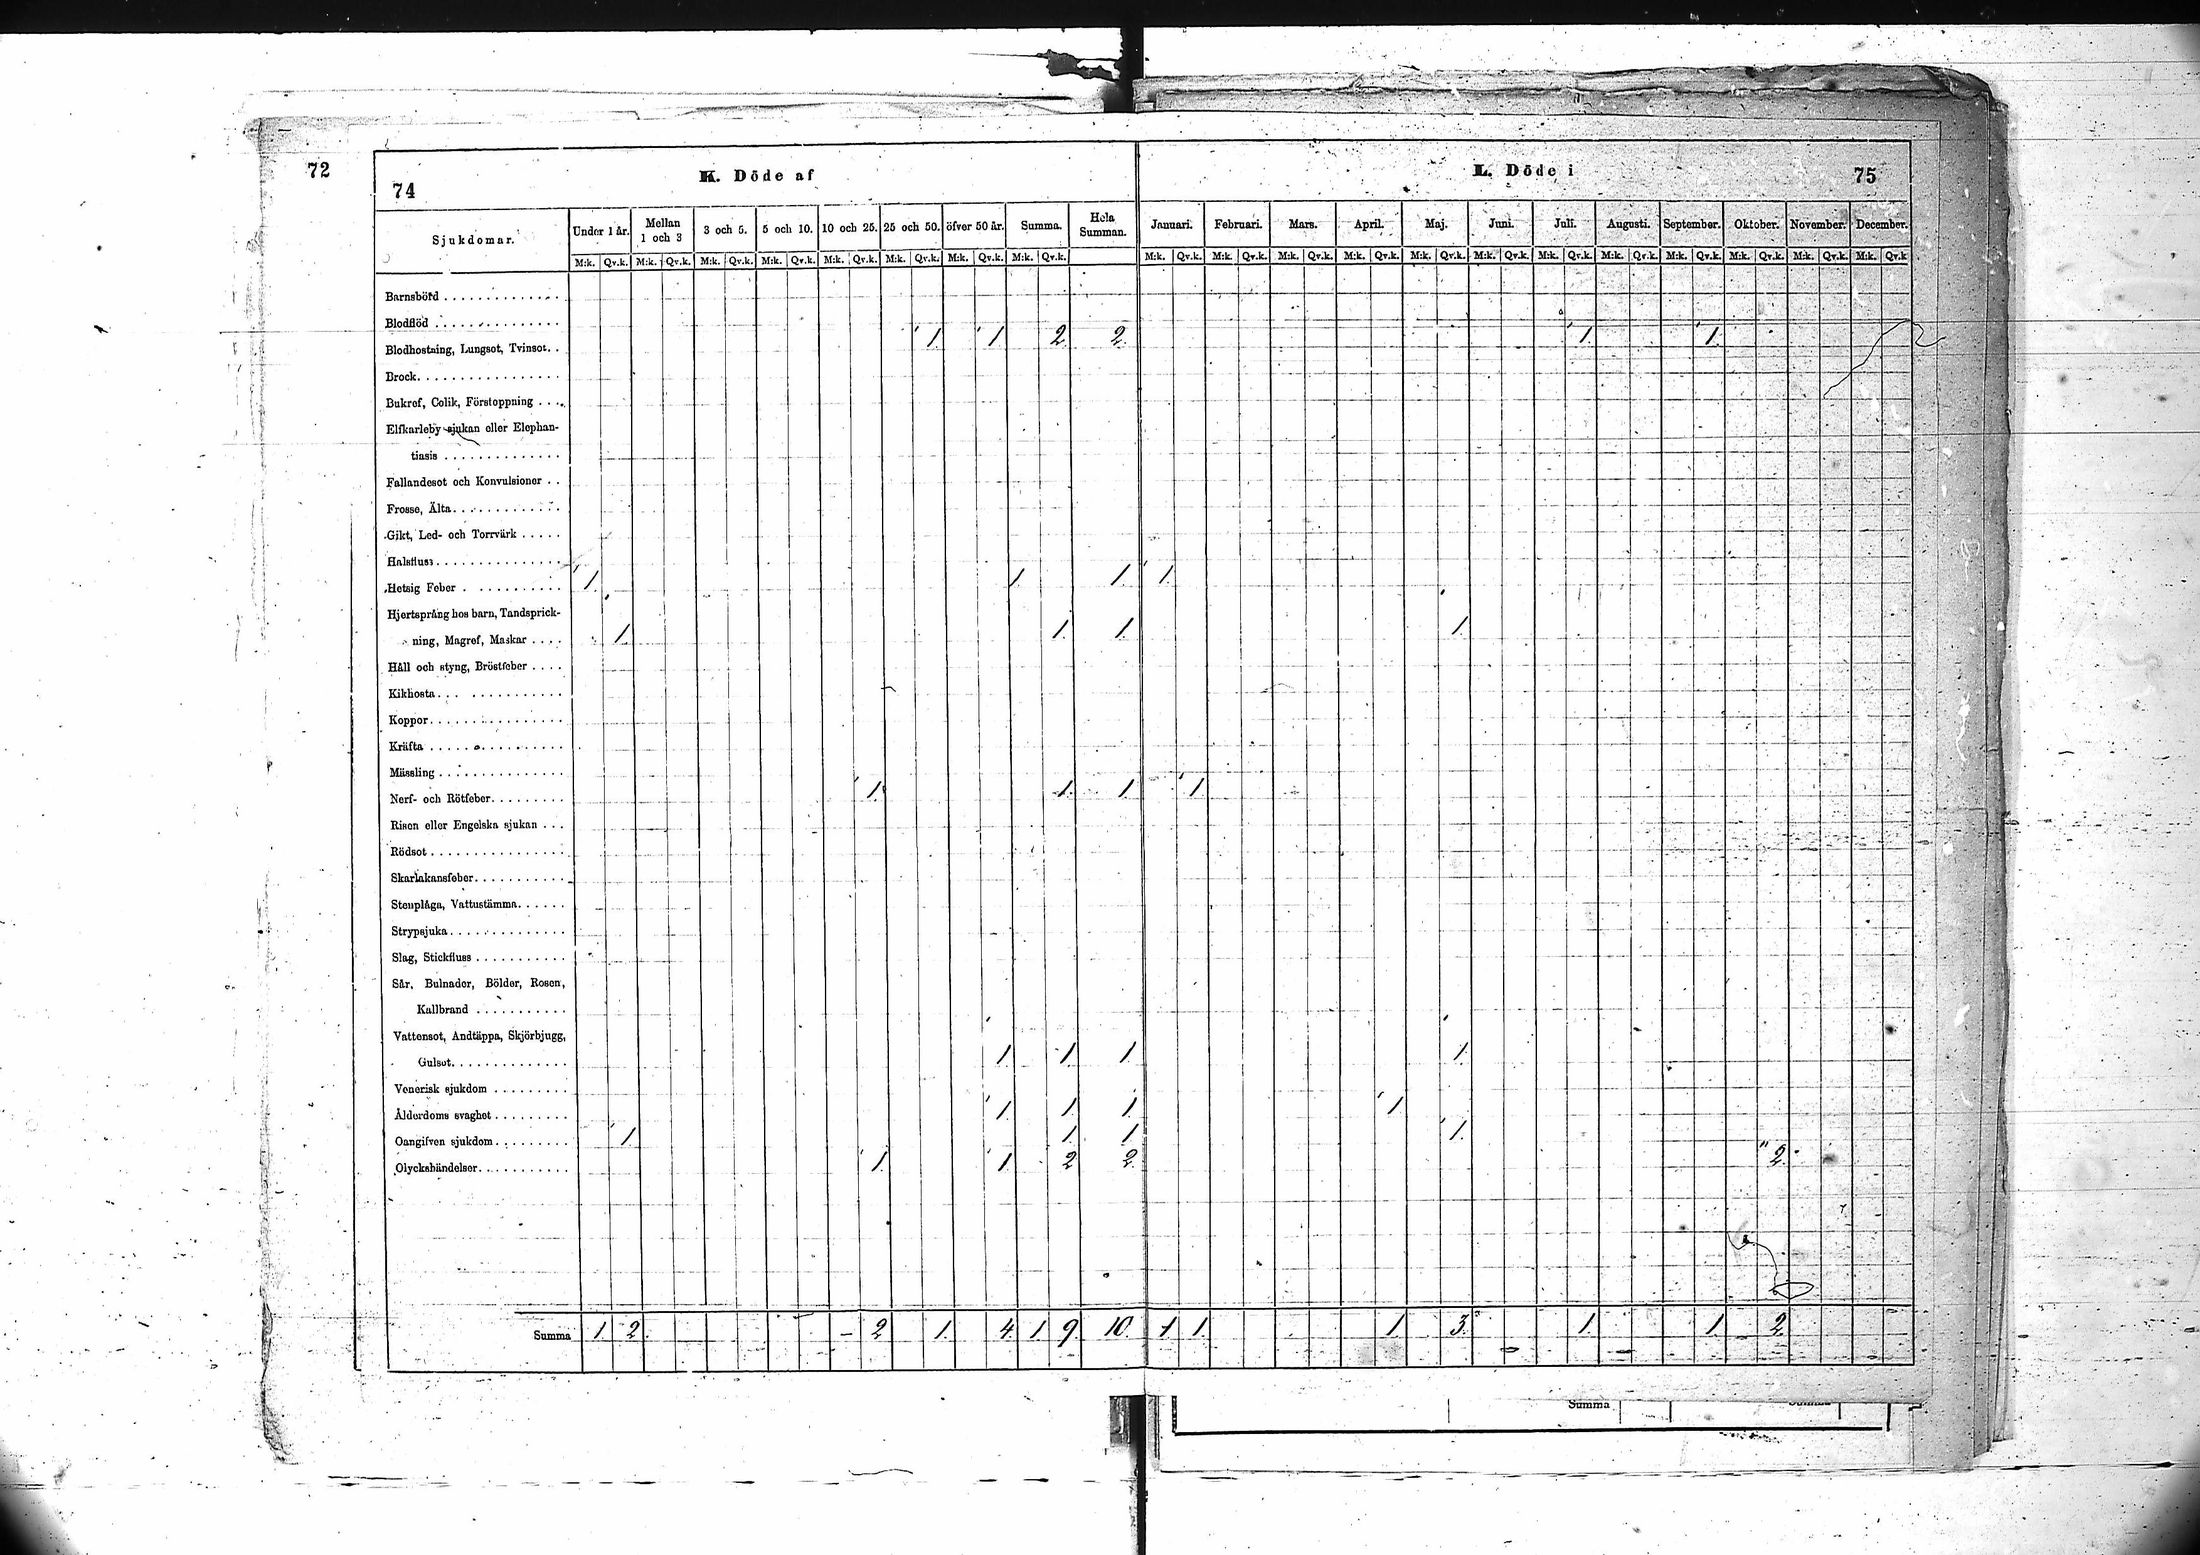 72
74
K. Döde af
L. Döde i
75
Sjukdomar.
Under 1 år.
Mellan
1 och 3
3 och 5.
5 och 10.
10 och 25.
25 och 50.
öfver 50 år.
Summa.
Hela
Summan.
Januari.
Februari.
Mars.
April.
Maj.
Juni.
Juli.
Augusti.
September.
Oktober.
November.
December.
M:k. Qv.k. M:k. Qv.k. M:k. Qv.k. M:k. Qv.k. M:k. Qv.k. M:k. Qv.k. M:k. Qv.k. M:k. Qv.k.
M:k. Qv.k. M:k. Qv.k. M:k. Qv.k. M:k. Qv.k. M:k. Qv.k. M:k. Qv.k. M:k. Qv.k. M:k. Qv.k. M:k. Qv.k. M:k. Qv.k. M:k. Qv.k. M:k. Qv.k
Barnsbörd
Blodflöd
Blodhostning, Lungsot, Tvinsot. . 1. 1 2. 2. 1. 1.
Brock
Bukref, Colik, Förstoppning
Elfkarleby sjukan eller Elephan-
tiasis
Fallandesot och Konvulsioner
Frosse, Älta
Gikt, Led- och Torrvärk
Halsfluss
Hetsig Feber 1. 1. 1. 1.
Hjertsprång hos barn, Tandsprick-
ning, Magref, Maskar 1. 1. 1. 1.
Håll och styng, Bröstfeber
Kikhosta
Koppor
Kräfta
Mässling
Nerf- och Rötfeber 1. 1. 1. 1.
Risen eller Engelska sjukan
Rödsot
Skarlakansfeber
Stenplåga, Vattustämma
Strypsjuka
Slag, Stickfluss
Sår, Bulnader, Bölder, Rosen,
Kallbrand
Vattensot, Andtäppa, Skjörbjugg,
Gulsot 1. 1. 1. 1.
Venerisk sjukdom
Ålderdoms svaghet 1. 1. 1. 1.
Oangifven sjukdom 1. 1. 1. 1.
Olyckshändelser 1. 1. 2. 2. 2.
Summa 1. 2. – 2. 1. 4. 1 9. 10. 1 1. 1. 3. 1. 1. 2.
Summa